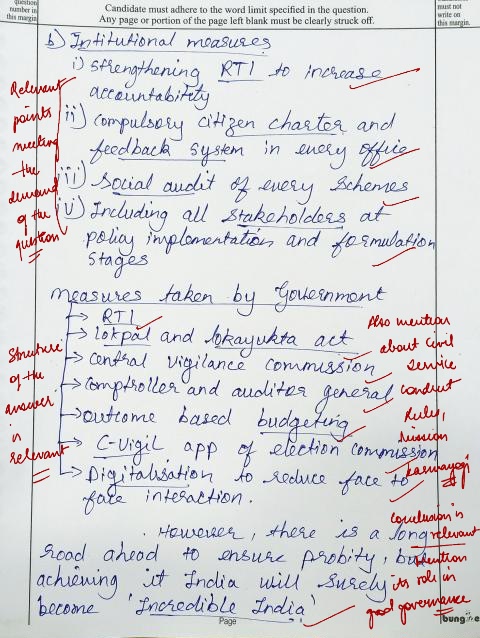 question
number in
this margin
Candidate must adhere to the word limit specified in the question.
Any page or portion of the page left blank must be clearly struck off.
must not
write on
this margin.
b) Intitutional measures
i) Strengthening RTI to increase
accountability
ii) compulsory citizen charter and
feedback system in every office
iii) Social audit of every schemes
iv) Including all stakeholders at
policy implementation and formulation
stages
Relevant
points
meeting
the
demand
of the
question
Measures taken by Government
→ RTI
→ lokpal and lokayukta act
→ central vigilance commission
→ comptroller and auditor general
→ outcome based budgeting
→ C-Vigil app of election commission
→ Digitalisation to reduce face to
face interaction.
Structure
of the
answer
is
relevant
Also mention
about civil
service
conduct
Rules,
Mission
karmayogi
However, there is a long
road ahead to ensure probity, but
achieving it India will surely
become 'Incredible India'
conclusion is
relevant
mention
its role in
good governance
Page